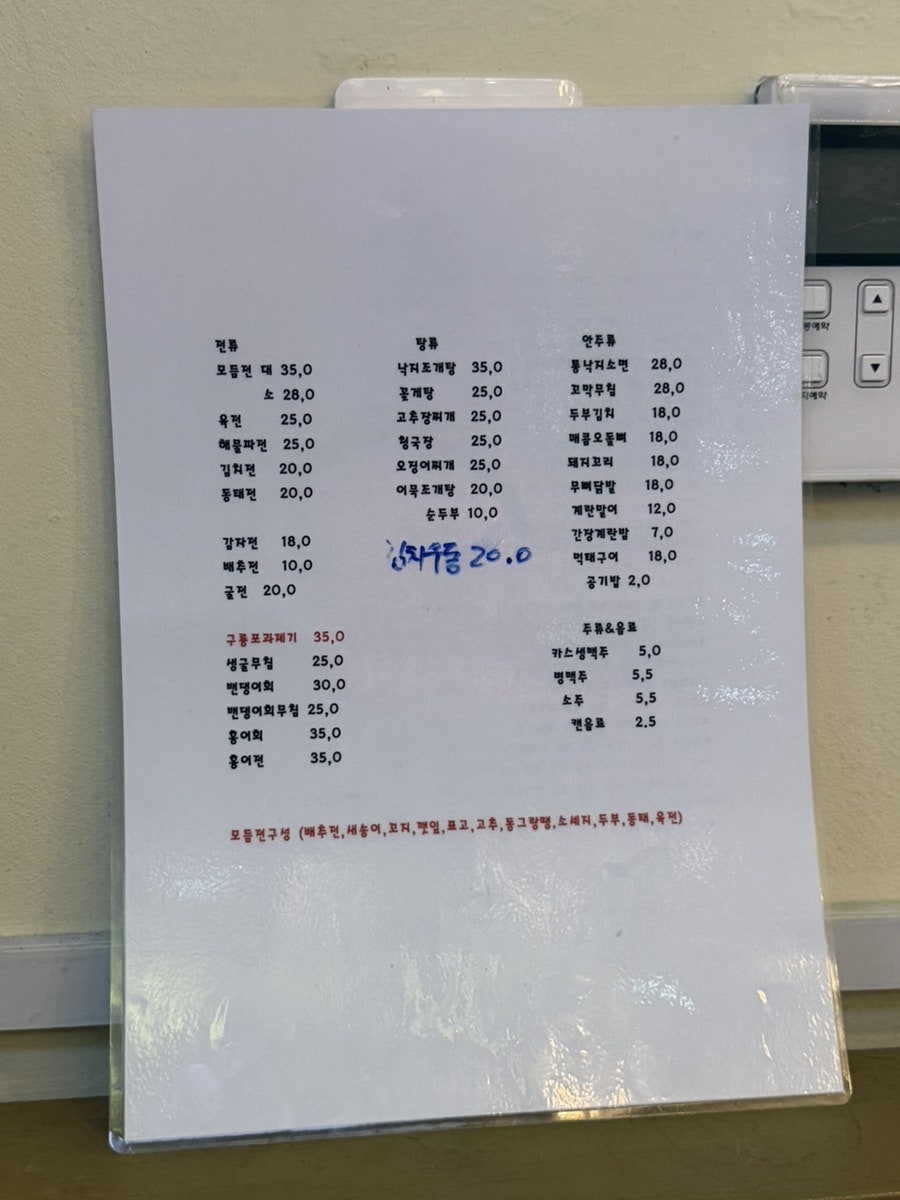 전류
모듬전 대 35,0
소 28,0
육전 25,0
해물파전 25,0
김치전 20,0
동태전 20,0
감자전 18,0
배추전 10,0
굴전 20,0
구룡포과메기 35,0
생굴무침 25,0
밴댕이회 30,0
밴댕이회무침 25,0
홍어회 35,0
홍어전 35,0
탕류
낙지조개탕 35,0
꽃게탕 25,0
고추장찌개 25,0
청국장 25,0
오징어찌개 25,0
어묵조개탕 20,0
순두부 10,0
김치우동 20.0
안주류
통낙지소면 28,0
꼬막무침 28,0
두부김치 18,0
매콤오돌뼈 18,0
돼지꼬리 18,0
무뼈닭발 18,0
계란말이 12,0
간장계란밥 7,0
먹태구이 18,0
공기밥 2,0
주류&음료
카스생맥주 5,0
병맥주 5,5
소주 5,5
캔음료 2.5
모듬전구성 (배추전,새송이,꼬지,깻잎,표고,고추,동그랑땡,소세지,두부,동태,육전)